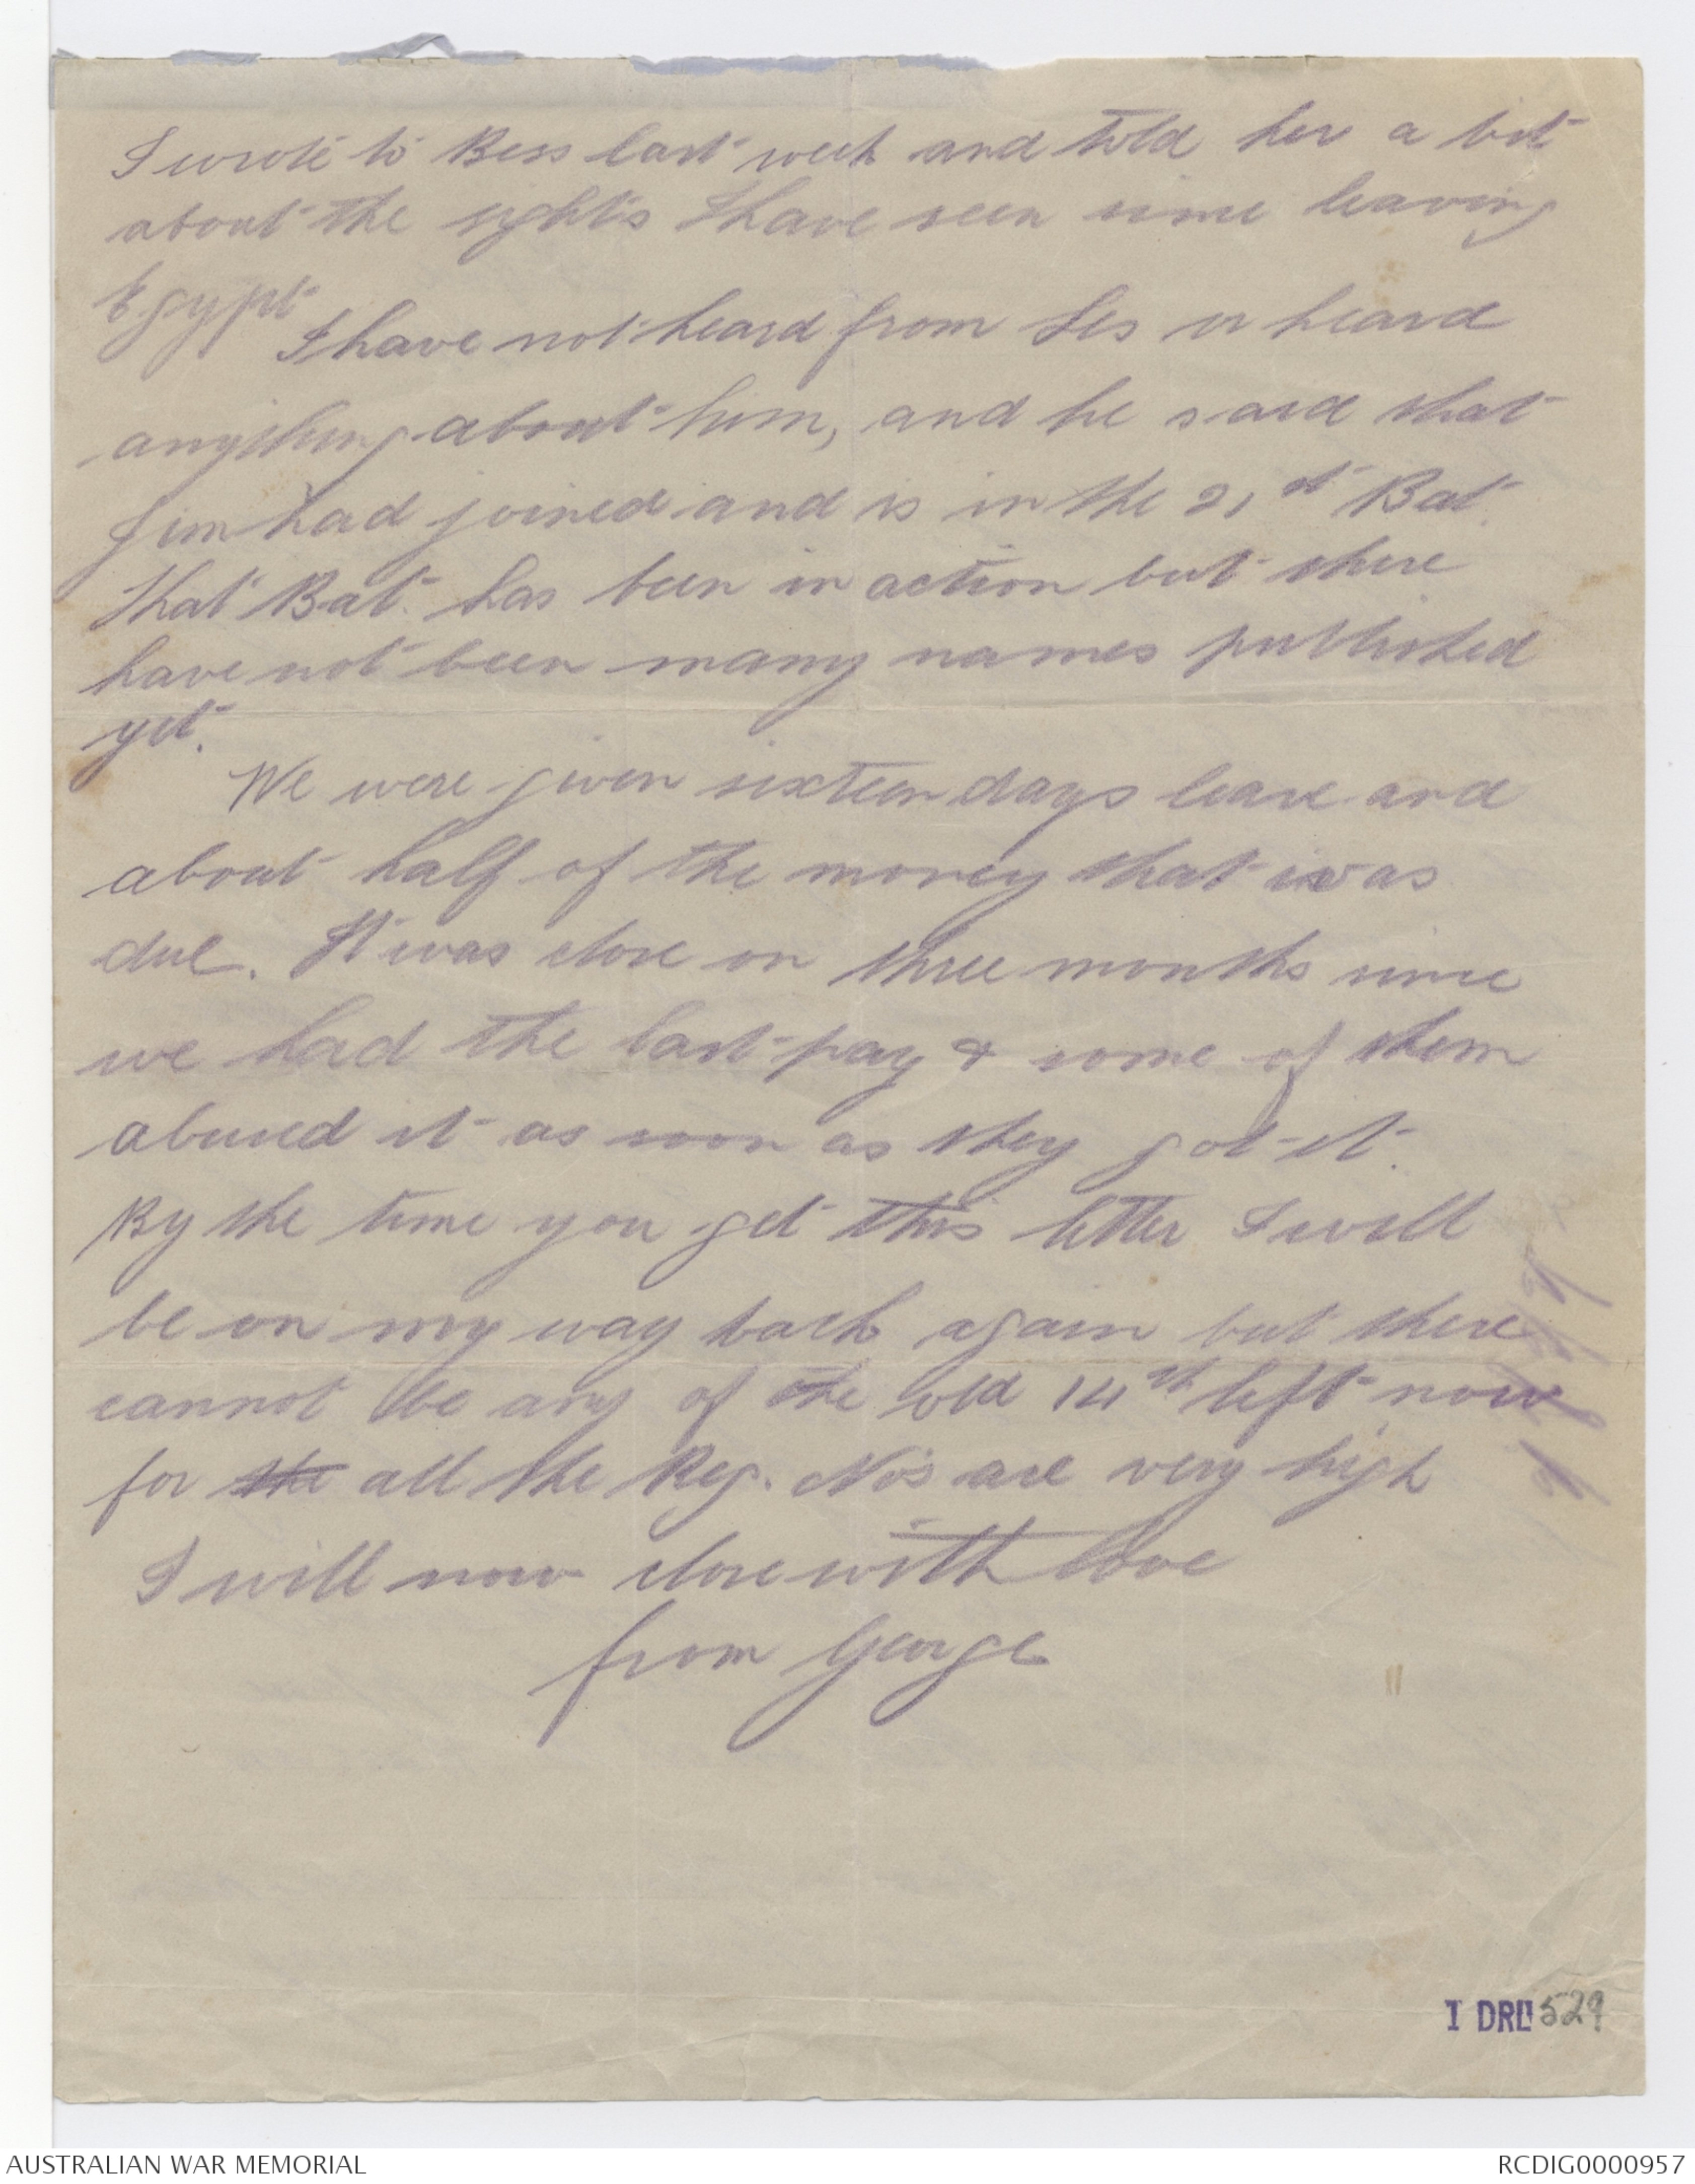 I wrote to Bess last week and told her a bit
about the sights I have seen since leaving
Egypt
I have not heard from Les or heard
anything about him, and he said that
Jim had joined and is in the 21st Bat.
That Bat. has been in action but there
have not been many names published
yet.
We were given sixteen days leave and
about half of the money that was
due. It was close on three months since
we had the last pay & some of them
abused it as soon as they got it.
By the time you get this letter I will
be on my way back again but there
cannot be any of the old 14th left now
for the all the Reg. No's are very high
I will now close with love
from George
I DRL 529
AUSTRALIAN WAR MEMORIAL
RCDIG0000957